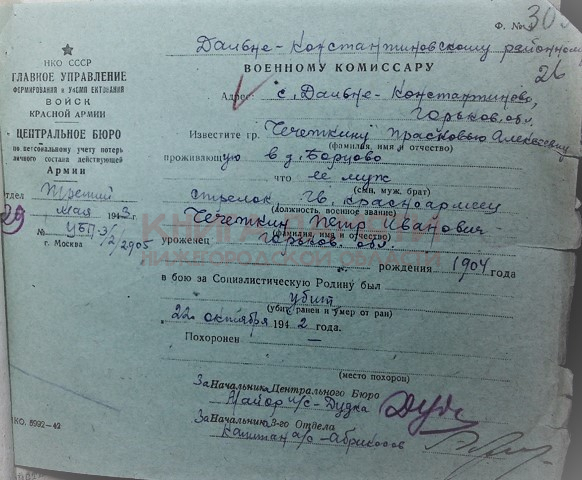 Ф. №
30
26
Дальне-Константиновскому районному
ВОЕННОМУ КОМИССАРУ
Адрес с. Дальне-Константиново,
Горьков. обл.
НКО СССР
ГЛАВНОЕ УПРАВЛЕНИЕ
ФОРМИРОВАНИЯ и УКОМПЛЕКТОВАНИЯ
ВОЙСК
КРАСНОЙ АРМИИ
ЦЕНТРАЛЬНОЕ БЮРО
по персональному учету потерь
личного состава действующей
Армии
отдел Третий
29 мая 194
№ УБП-3/
2/2905
г. Москва
Известите гр. Чечеткину Прасковью Алексеевну
(фамилия, имя и отчество)
проживающую в д. Борцово
что ее муж
(сын, муж, брат)
стрелок, гв. красноармеец
(должность, военное звание)
Чечеткин Петр Иванович
(фамилия, имя и отчество)
уроженец Горьков. обл.
КНИГА ПАМЯТИ
НИЖЕГОРОДСКОЙ ОБЛАСТИ
рождения 1904 года
в бою за Социалистическую Родину был
убит
(убит, ранен и умер от ран)
22 октября 1942 года.
Похоронен —
(место похорон)
За Начальника Центрального Бюро
Майор и/с - Дудка
За Начальника 3-го Отдела
Капитан а/с - Абрикосов
КО. 5992-42